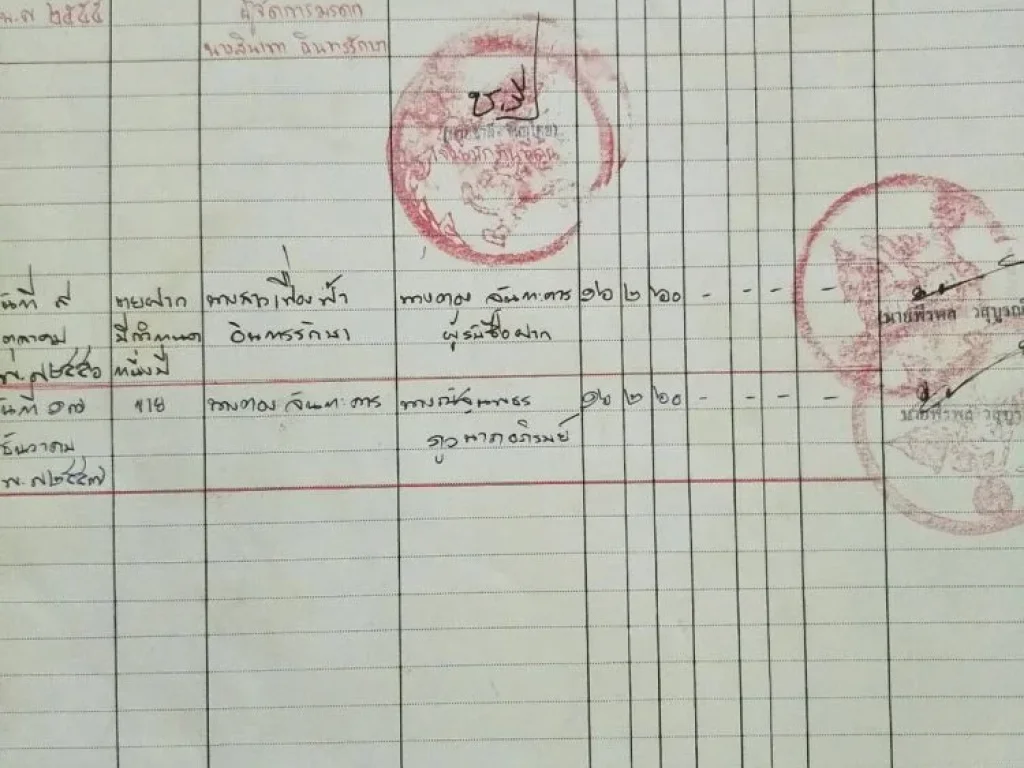 พ.ศ ๒๕๕๕
ผู้จัดการมรดก
อินทรรักษา
วันที่ ๙
ตุลาคม
พ.ศ๒๕๕๖
ขายฝาก
มีกำหนด
หนึ่งปี
นางสาวเฟื่องฟ้า
อินทรรักษา
นางตวง จันทะดาร
ผู้รับซื้อฝาก
๑๖ ๒ ๖๐ - - - - -
(นายพีรพล วสุบูรณ์
วันที่ ๑๗
ธันวาคม
พ.ศ๒๕๕๗
ขาย
นางตวง จันทะดาร
๑๖ ๒ ๖๐ - - - - -
นายพีรพล วสุบูร